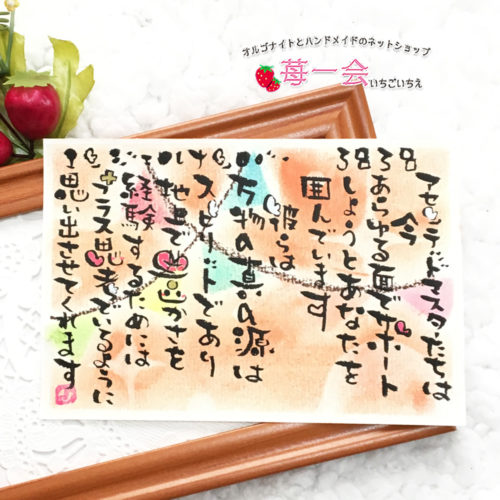 オルゴナイトとハンドメイドのネットショップ
苺一会いちごいちえ
アセンデッドマスタたちは
今
あらゆる面でサポート
しようとあなたを
囲んでいます
彼らは
万物の真の源は
スピリットであり
地上で豊かさを
経験するためには
プラス思考でいるように
思い出させてくれます